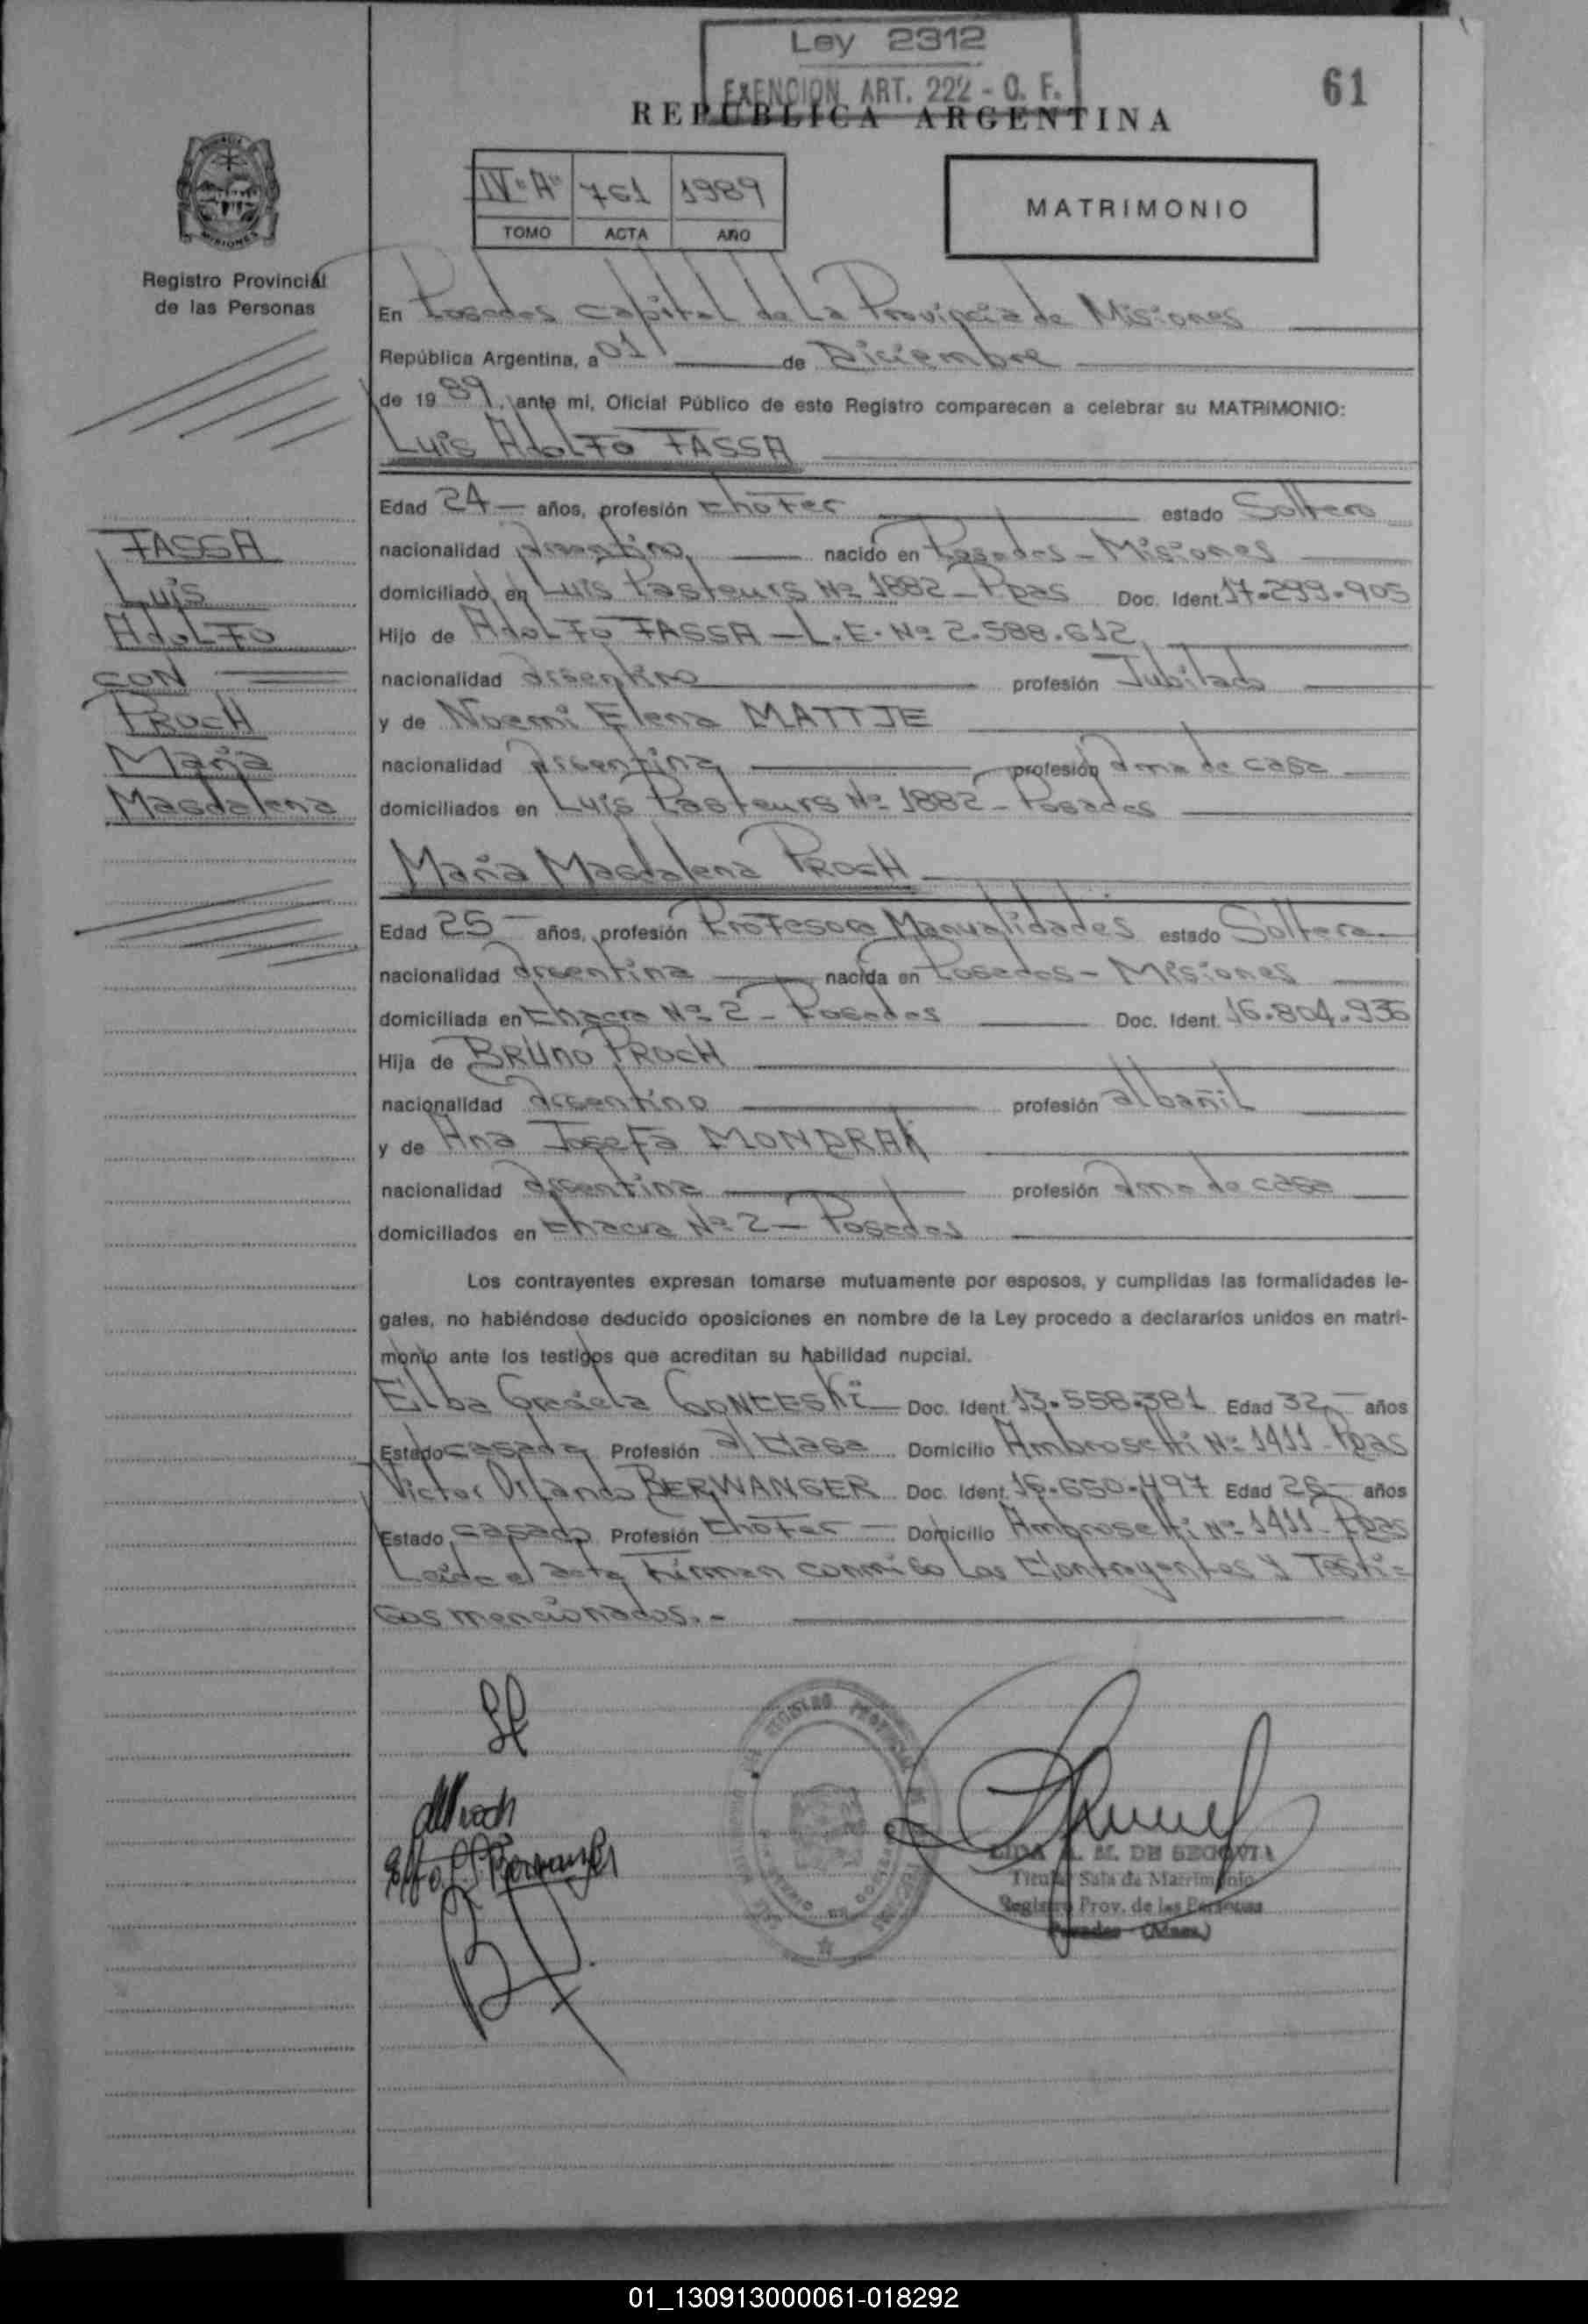 Ley 2312
EXENCION ART. 222 - O. F.
61
REPUBLICA ARGENTINA
IV "A" 761 1989
TOMO ACTA AÑO
MATRIMONIO
MISIONES
Registro Provincial
de las Personas
En Posadas Capital de La Provincia de Misiones
República Argentina, a 01 de Diciembre
de 1989, ante mi, Oficial Público de este Registro comparecen a celebrar su MATRIMONIO:
Luis Adolfo FASSA
Edad 24 años, profesión chofer estado Soltero
nacionalidad Argentino nacido en Posadas - Misiones
domiciliado en Luis Pasteurs Nº 1882 - Ppas Doc. Ident. 17.299.905
Hijo de Adolfo FASSA - L.E. Nº 2.588.612
nacionalidad argentino profesión Jubilado
y de Noemi Elena MATTJE
nacionalidad argentina profesión ama de casa
domiciliados en Luis Pasteurs Nº 1882 - Posadas
FASSA
Luis
Adolfo
CON
PROCH
María
Magdalena
María Magdalena PROCH
Edad 25 años, profesión Profesora Manualidades estado Soltera
nacionalidad argentina nacida en Posadas - Misiones
domiciliada en Chacra Nº 2 - Posadas Doc. Ident. 16.804.936
Hija de BRUNO PROCH
nacionalidad argentino profesión albañil
y de Ana Josefa MONDRAK
nacionalidad argentina profesión ama de casa
domiciliados en Chacra Nº 2 - Posadas
Los contrayentes expresan tomarse mutuamente por esposos, y cumplidas las formalidades le-
gales, no habiéndose deducido oposiciones en nombre de la Ley procedo a declararlos unidos en matri-
monio ante los testigos que acreditan su habilidad nupcial.
Elba Graciela GONCESKI Doc. Ident. 13.558.381 Edad 32 años
Estado casada Profesión a/casa Domicilio Ambrosetti Nº 1411 - Ppas
Victor Orlando BERWANGER Doc. Ident. 16.650.497 Edad 26 años
Estado casado Profesión chofer Domicilio Ambrosetti Nº 1411 - Ppas
Leida el acta Firman conmigo Los Contrayentes y Testi=
gos mencionados.-
LIDA M. DE SEGOVIA
Titular Sala de Matrimonio
Registro Prov. de las Personas
Posadas - (Mnes.)
01_130913000061-018292